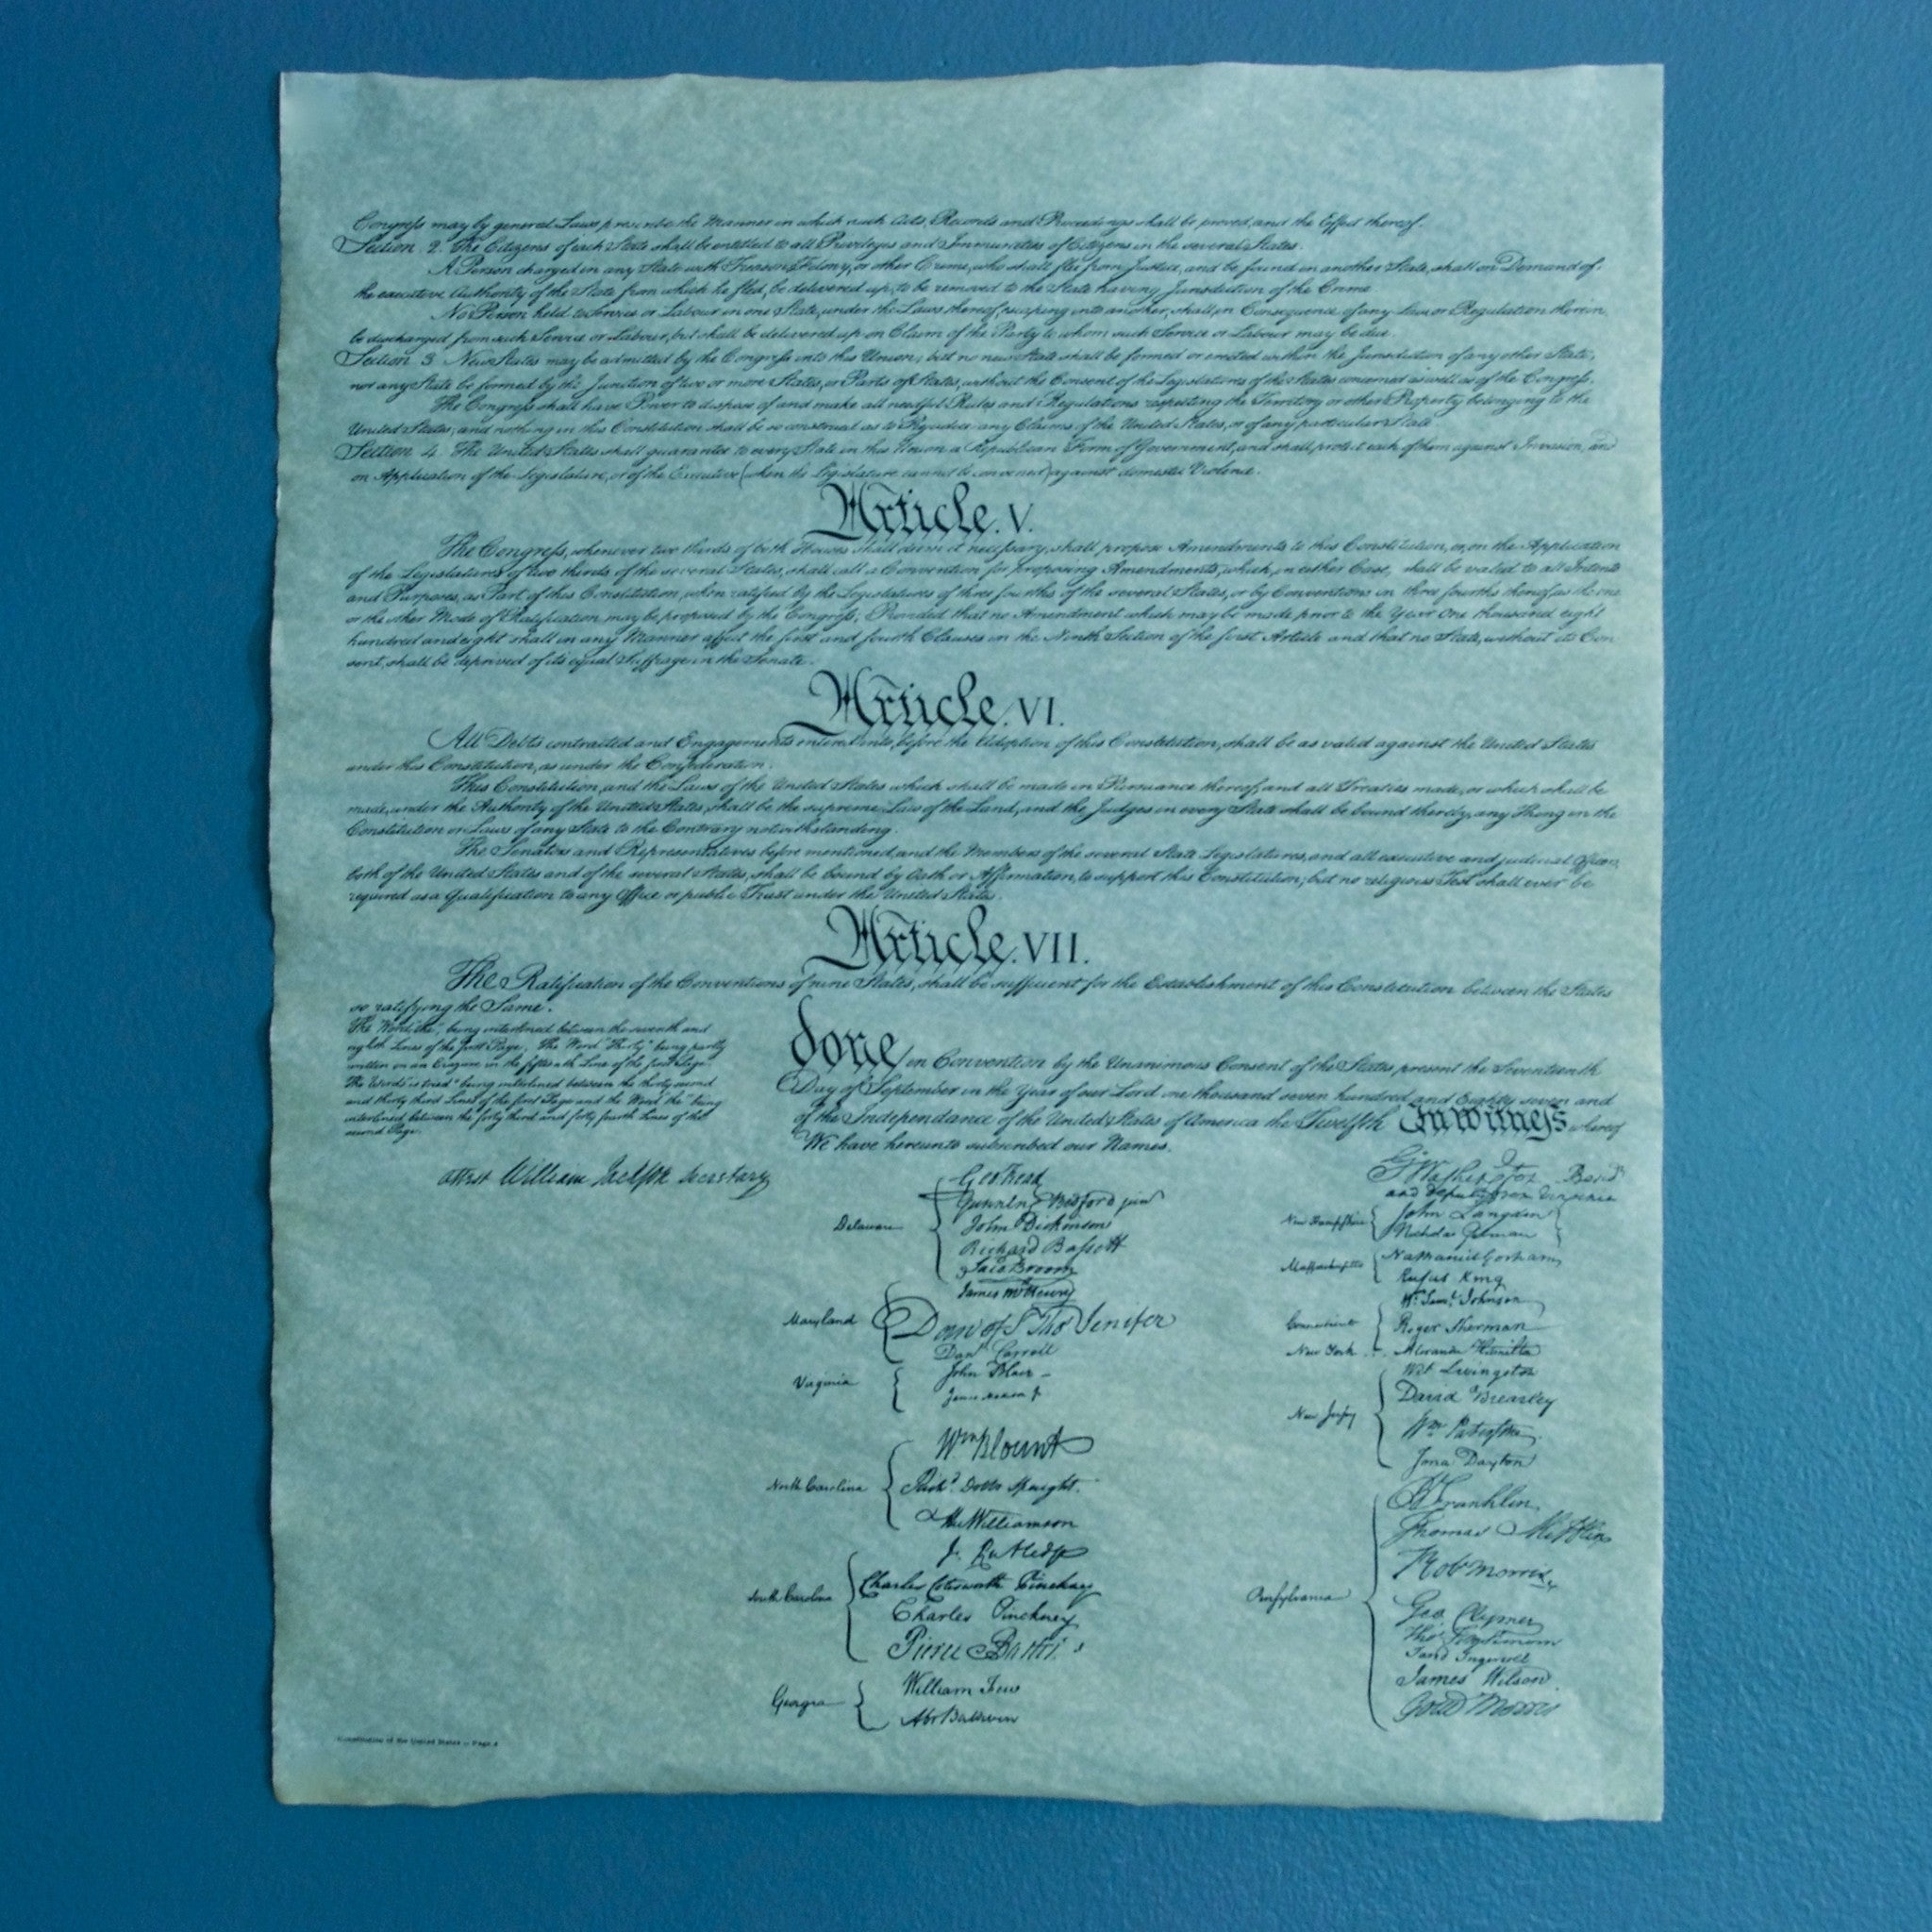 Congress may by general Laws prescribe the Manner in which such Acts, Records and Proceedings shall be proved, and the Effect thereof.
Section 2. The Citizens of each State shall be entitled to all Privileges and Immunities of Citizens in the several States.
A Person charged in any State with Treason, Felony, or other Crime, who shall flee from Justice, and be found in another State, shall on Demand of
the executive Authority of the State from which he fled, be delivered up, to be removed to the State having Jurisdiction of the Crime.
No Person held to Service or Labour in one State, under the Laws thereof, escaping into another, shall, in Consequence of any Law or Regulation therein,
be discharged from such Service or Labour, but shall be delivered up on Claim of the Party to whom such Service or Labour may be due.
Section 3. New States may be admitted by the Congress into this Union; but no new State shall be formed or erected within the Jurisdiction of any other State;
nor any State be formed by the Junction of two or more States, or Parts of States, without the Consent of the Legislatures of the States concerned as well as of the Congress.
The Congress shall have Power to dispose of and make all needful Rules and Regulations respecting the Territory or other Property belonging to the
United States; and nothing in this Constitution shall be so construed as to Prejudice any Claims of the United States, or of any particular State.
Section 4. The United States shall guarantee to every State in this Union a Republican Form of Government, and shall protect each of them against Invasion; and
on Application of the Legislature, or of the Executive (when the Legislature cannot be convened) against domestic Violence.
Article. V.
The Congress, whenever two thirds of both Houses shall deem it necessary, shall propose Amendments to this Constitution, or, on the Application
of the Legislatures of two thirds of the several States, shall call a Convention for proposing Amendments, which, in either Case, shall be valid to all Intents
and Purposes, as Part of this Constitution, when ratified by the Legislatures of three fourths of the several States, or by Conventions in three fourths thereof, as the one
or the other Mode of Ratification may be proposed by the Congress; Provided that no Amendment which may be made prior to the Year One thousand eight
hundred and eight shall in any Manner affect the first and fourth Clauses in the Ninth Section of the first Article; and that no State, without its Con
sent, shall be deprived of its equal Suffrage in the Senate.
Article. VI.
All Debts contracted and Engagements entered into, before the Adoption of this Constitution, shall be as valid against the United States
under this Constitution, as under the Confederation.
This Constitution, and the Laws of the United States which shall be made in Pursuance thereof; and all Treaties made, or which shall be
made, under the Authority of the United States, shall be the supreme Law of the Land; and the Judges in every State shall be bound thereby, any Thing in the
Constitution or Laws of any State to the Contrary notwithstanding.
The Senators and Representatives before mentioned, and the Members of the several State Legislatures, and all executive and judicial Officers,
both of the United States and of the several States, shall be bound by Oath or Affirmation, to support this Constitution; but no religious Test shall ever be
required as a Qualification to any Office or public Trust under the United States.
Article. VII.
The Ratification of the Conventions of nine States, shall be sufficient for the Establishment of this Constitution between the States
so ratifying the Same.
The Word, "the," being interlined between the seventh and
eighth Lines of the first Page, The Word "Thirty" being partly
written on an Erazure in the fifteenth Line of the first Page,
The Words "is tried" being interlined between the thirty second
and thirty third Lines of the first Page and the Word "the" being
interlined between the forty third and forty fourth Lines of the
second Page.
Attest William Jackson Secretary
done in Convention by the Unanimous Consent of the States present the Seventeenth
Day of September in the Year of our Lord one thousand seven hundred and Eighty seven and
of the Independance of the United States of America the Twelfth In Witness whereof
We have hereunto subscribed our Names,
Delaware
Geo: Read
Gunning Bedford jun
John Dickinson
Richard Bassett
Jaco: Broom
Maryland
James McHenry
Dan of St Thos Jenifer
Danl Carroll
Virginia
John Blair –
James Madison Jr
North Carolina
Wm Blount
Richd. Dobbs Spaight.
Hu Williamson
South Carolina
J. Rutledge
Charles Cotesworth Pinckney
Charles Pinckney
Pierce Butler.
Georgia
William Few
Abr Baldwin
Go Washington Presidt
and deputy from Virginia
New Hampshire
John Langdon
Nicholas Gilman
Massachusetts
Nathaniel Gorham
Rufus King
Connecticut
Wm. Saml. Johnson
Roger Sherman
New York . . .
Alexander Hamilton
New Jersey
Wil: Livingston
David Brearley
Wm. Paterson.
Jona: Dayton
Pensylvania
B Franklin
Thomas Mifflin
Robt Morris
Geo. Clymer
Thos. FitzSimons
Jared Ingersoll
James Wilson.
Gouv Morris
Constitution of the United States — Page 4